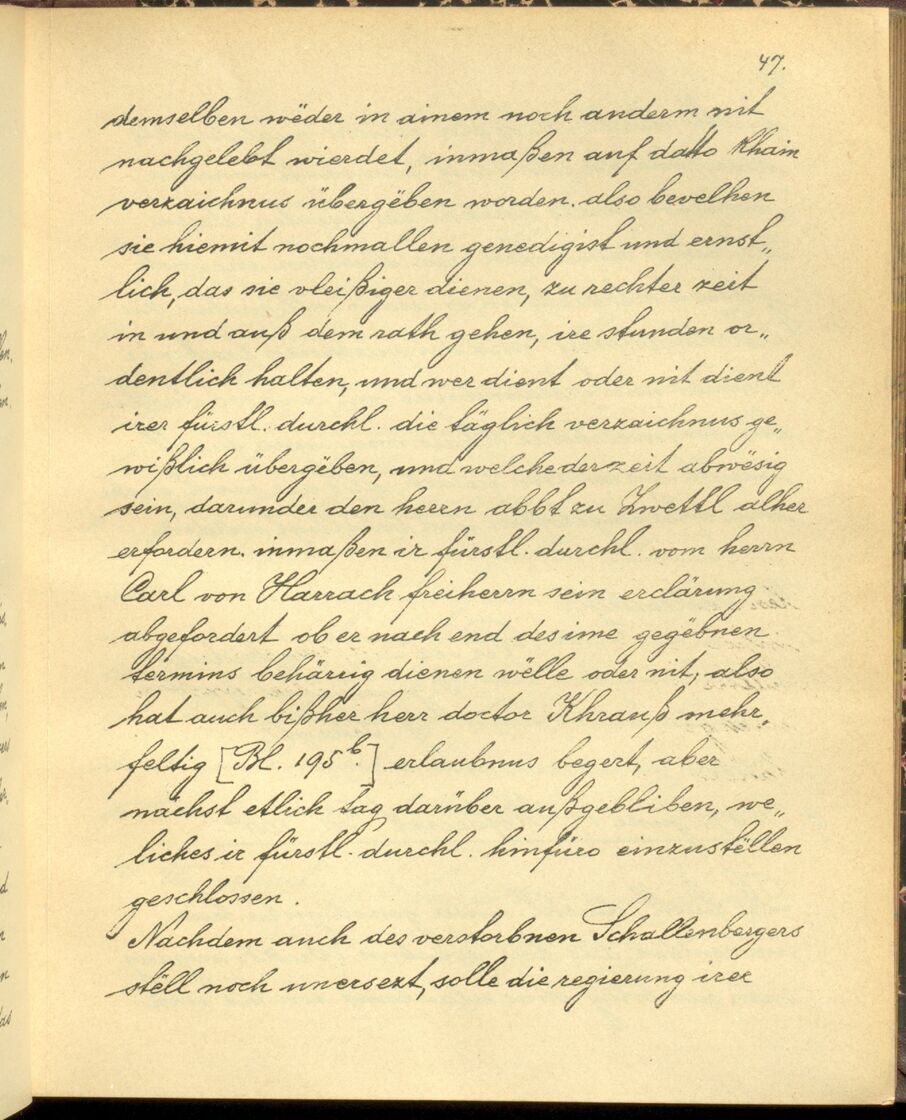 47.
demselben wëder in ainem noch anderm nit
nachgelebt wierdet, inmaßen auf datto khain
verzaichnus übergëben worden. also bevelhen
sie hiemit nochmallen genedigist und ernst„
lich, das sie vleißiger dienen, zu rechter zeit
in und auß dem rath gehen, ire stunden or„
dentlich halten, und wer dient oder nit dient
irer fürstl. durchl. die täglich verzaichnus ge„
wißlich übergëben, und welche derzeit abwësig
sein, darunder den herrn abbt zu Zwettl alher
erfordern. inmaßen ir fürstl. durchl. vom herrn
Carl von Harrach freiherrn sein erclärung
abgefordert ob er nach end des ime gegëbnen
termins behärrig dienen wëlle oder nit, also
hat auch bißher herr doctor Khrauß mehr„
feltig [Bl. 195b.] erlaubnus begert, aber
nächst etlich tag darüber außgebliben, we„
liches ir fürstl. durchl. hinfüro einzustëllen
geschlossen.
Nachdem auch des verstorbnen Schallenbergers
stëll noch unersezt, solle die regierung irer